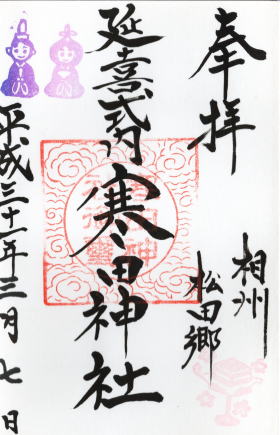 奉拝
相州
松田郷
延喜式内
寒田神社
平成三十一年三月七日